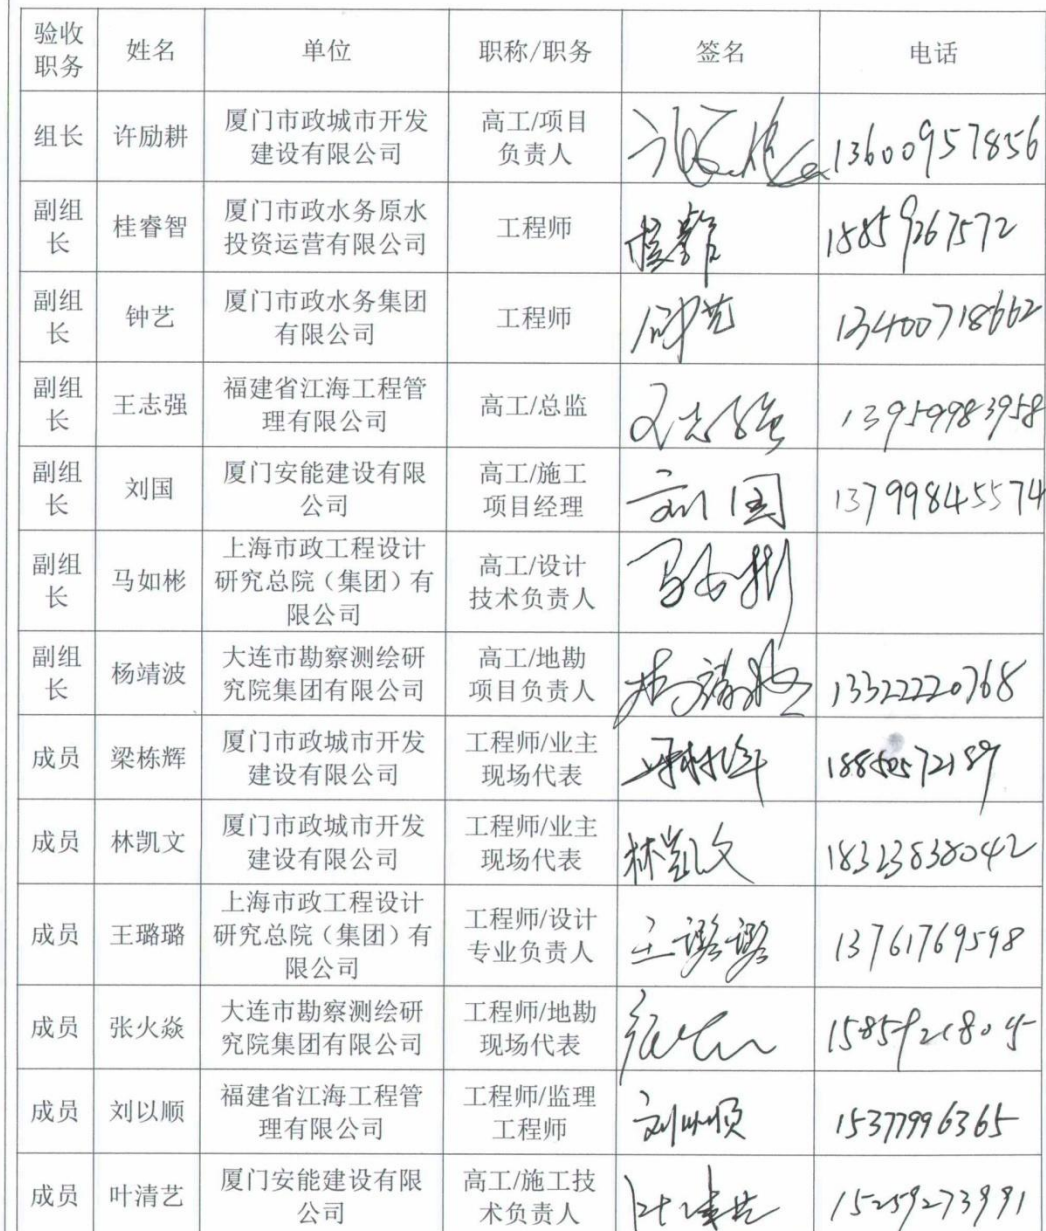 验收职务 姓名 单位 职称/职务 签名 电话
组长 许励耕 厦门市政城市开发建设有限公司 高工/项目负责人 13600957856
副组长 桂睿智 厦门市政水务原水投资运营有限公司 工程师 桂睿智 18859267572
副组长 钟艺 厦门市政水务集团有限公司 工程师 钟艺 13400718662
副组长 王志强 福建省江海工程管理有限公司 高工/总监 王志强 13959983958
副组长 刘国 厦门安能建设有限公司 高工/施工项目经理 刘国 13799845574
副组长 马如彬 上海市政工程设计研究总院（集团）有限公司 高工/设计技术负责人 马如彬
副组长 杨靖波 大连市勘察测绘研究院集团有限公司 高工/地勘项目负责人 杨靖波 13322220768
成员 梁栋辉 厦门市政城市开发建设有限公司 工程师/业主现场代表
成员 林凯文 厦门市政城市开发建设有限公司 工程师/业主现场代表 林凯文 18323838042
成员 王璐璐 上海市政工程设计研究总院（集团）有限公司 工程师/设计专业负责人 王璐璐 13761769598
成员 张火焱 大连市勘察测绘研究院集团有限公司 工程师/地勘现场代表 15859218045
成员 刘以顺 福建省江海工程管理有限公司 工程师/监理工程师 刘以顺 15377996365
成员 叶清艺 厦门安能建设有限公司 高工/施工技术负责人 叶清艺 15259273991